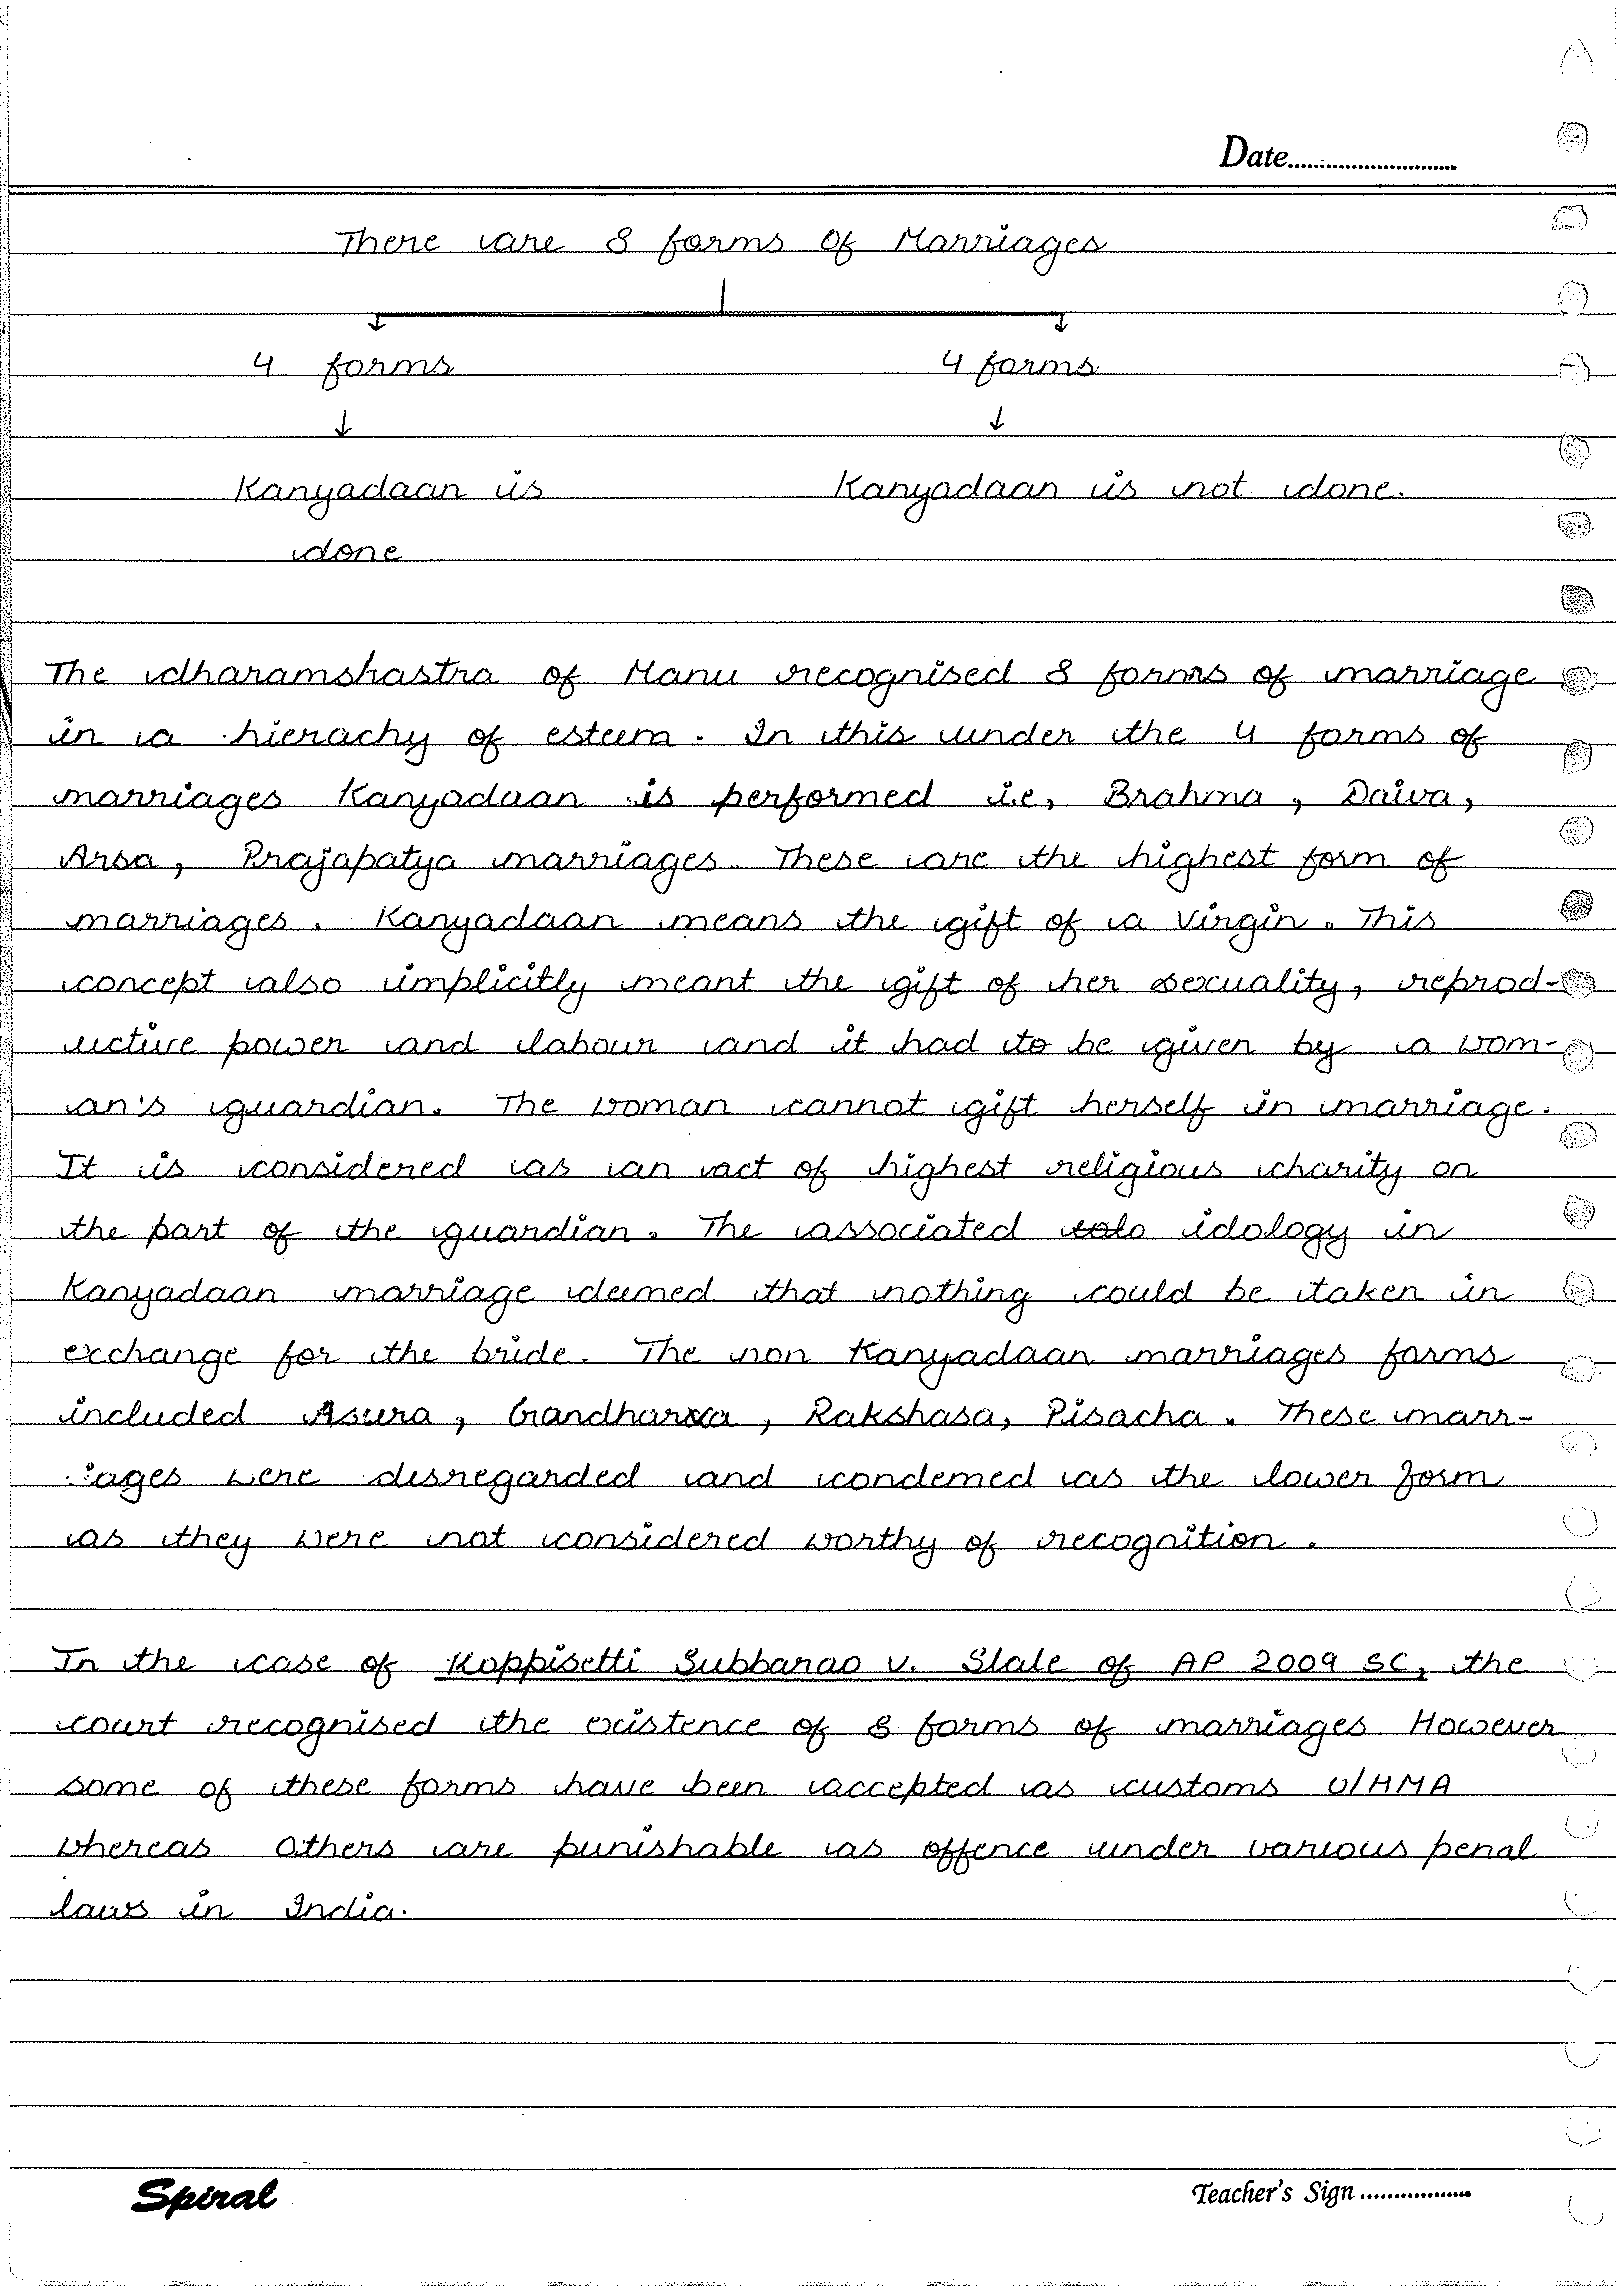 Date
There are 8 forms of Marriages
4 forms 4 forms
Kanyadaan is Kanyadaan is not done.
done
The dharamshastra of Manu recognised 8 forms of marriage
in a hierachy of esteem. In this under the 4 forms of
marriages Kanyadaan is performed i.e, Brahma, Daiva,
Arsa, Prajapatya marriages. These are the highest form of
marriages. Kanyadaan means the gift of a Virgin. This
concept also implicitly meant the gift of her sexuality, reprod-
uctive power and labour and it had to be given by a wom-
an's guardian. The woman cannot gift herself in marriage.
It is considered as an act of highest religious charity on
the part of the guardian. The associated idology in
Kanyadaan marriage deemed that nothing could be taken in
exchange for the bride. The non Kanyadaan marriages forms
included Asura, Gandharva, Rakshasa, Pisacha. These marr-
iages were disregarded and condemed as the lower form
as they were not considered worthy of recognition.
In the case of Koppisetti Subbarao v. State of AP 2009 SC, the
court recognised the existence of 8 forms of marriages However
some of these forms have been accepted as customs u/HMA
whereas Others are punishable as offence under various penal
laws in India.
Spiral Teacher's Sign